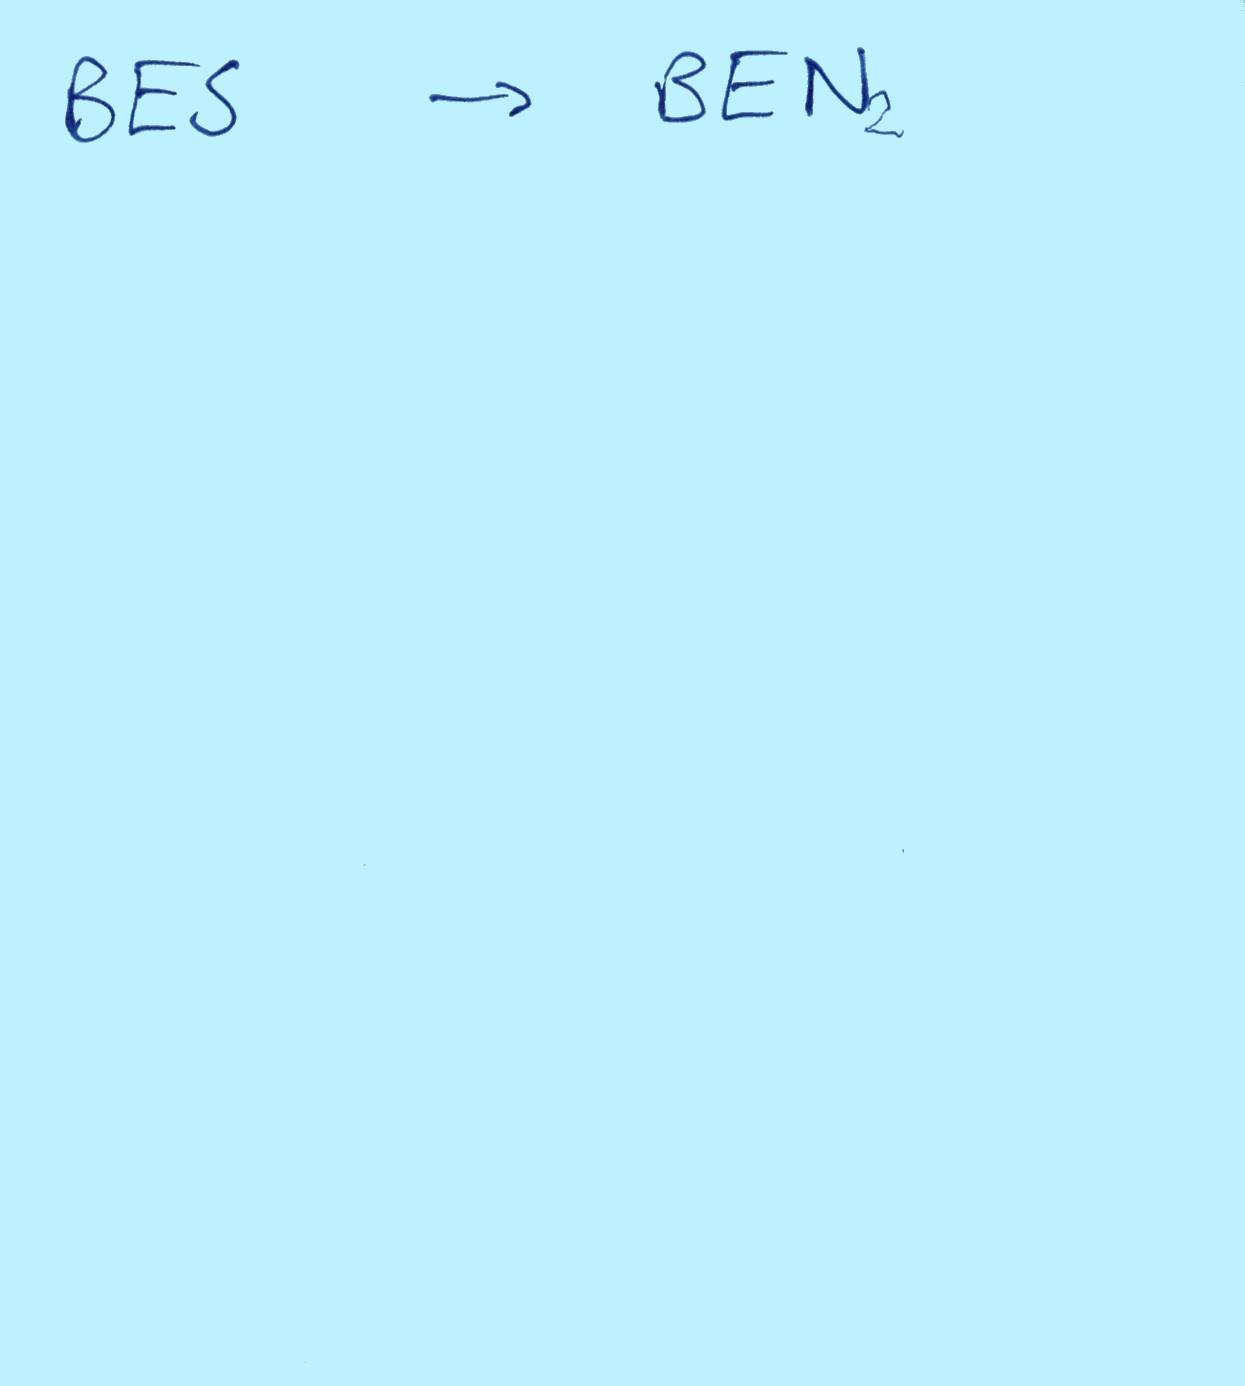 BES → BEN₂